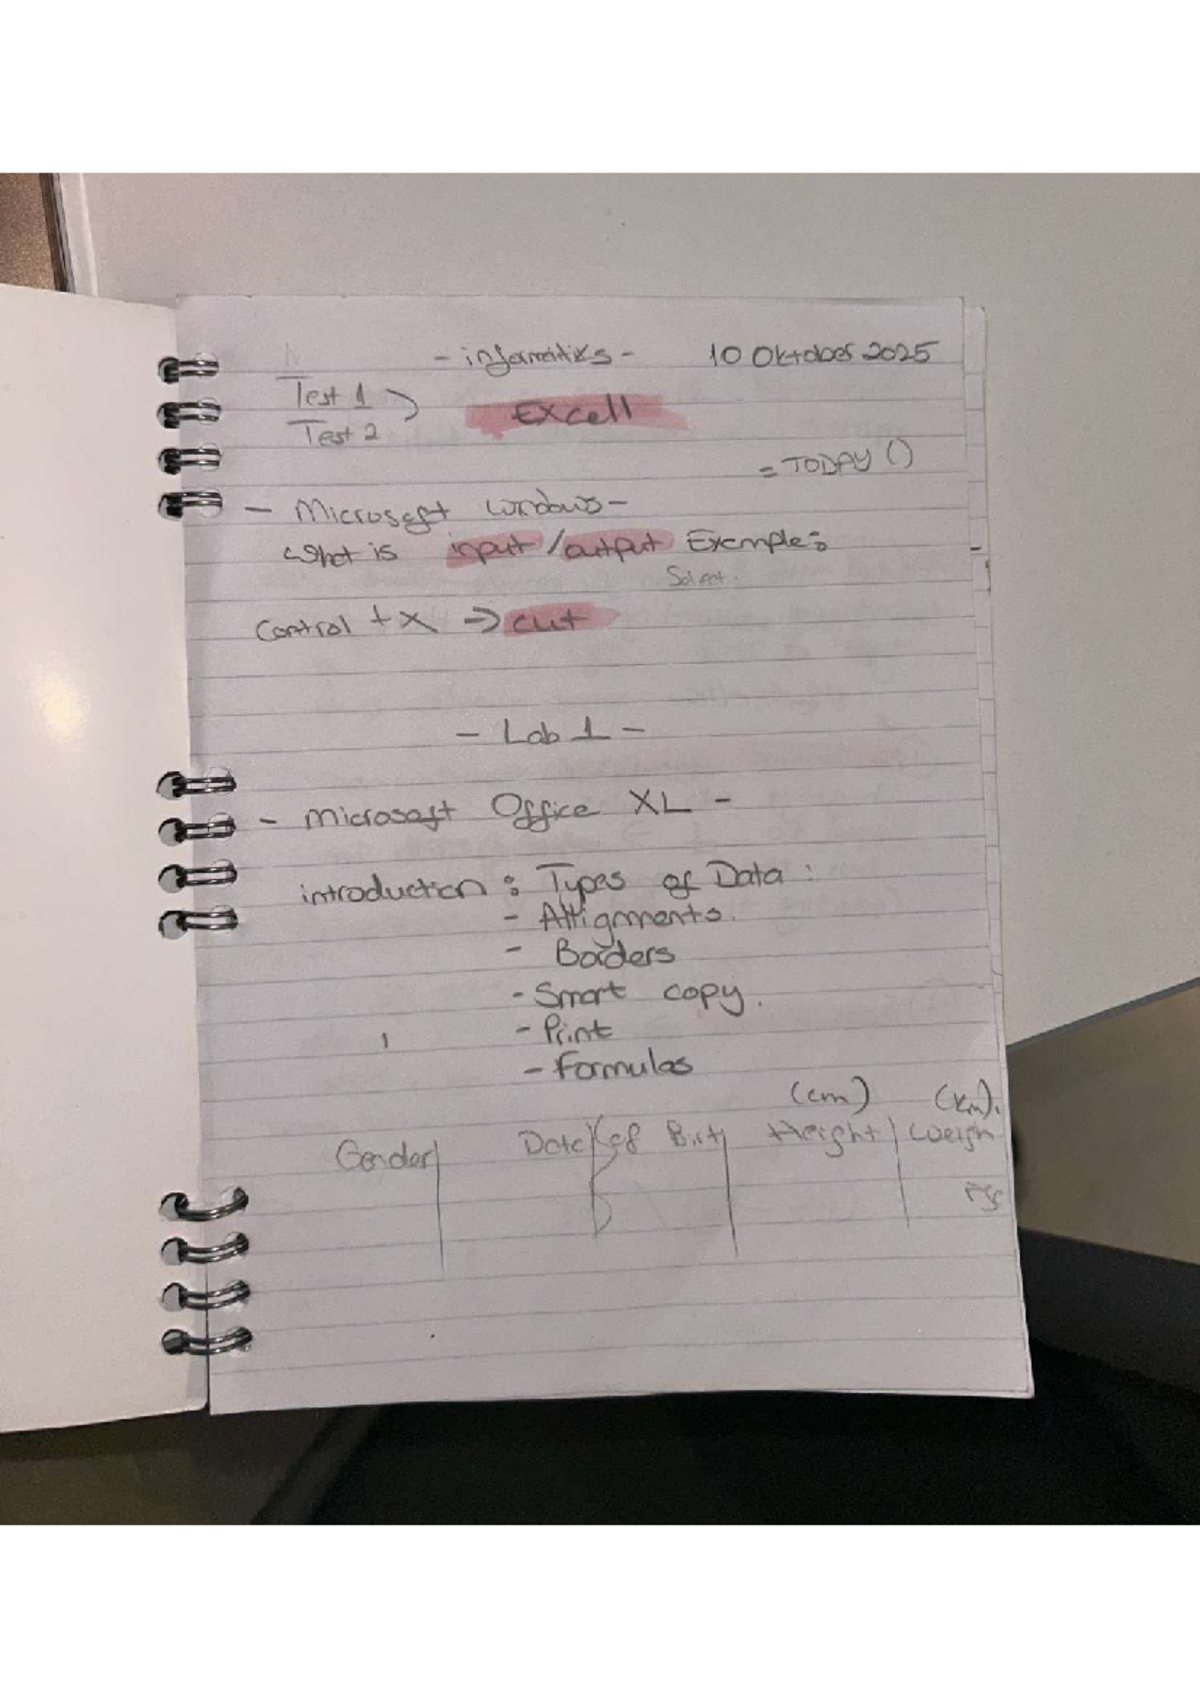 - informatiks -    10 Oktober 2025
Test 1
Test 2
EXcell
= TODAY ()
- Microsoft windows -
what is input / output Example:
Control + X → cut
- Lab 1 -
- microsoft Office XL -
introduction : Types of Data :
- Allignments.
- Borders
- Smart copy.
- Print
- Formulas
(cm) (km).
Gender Date of Birt Height Weigh